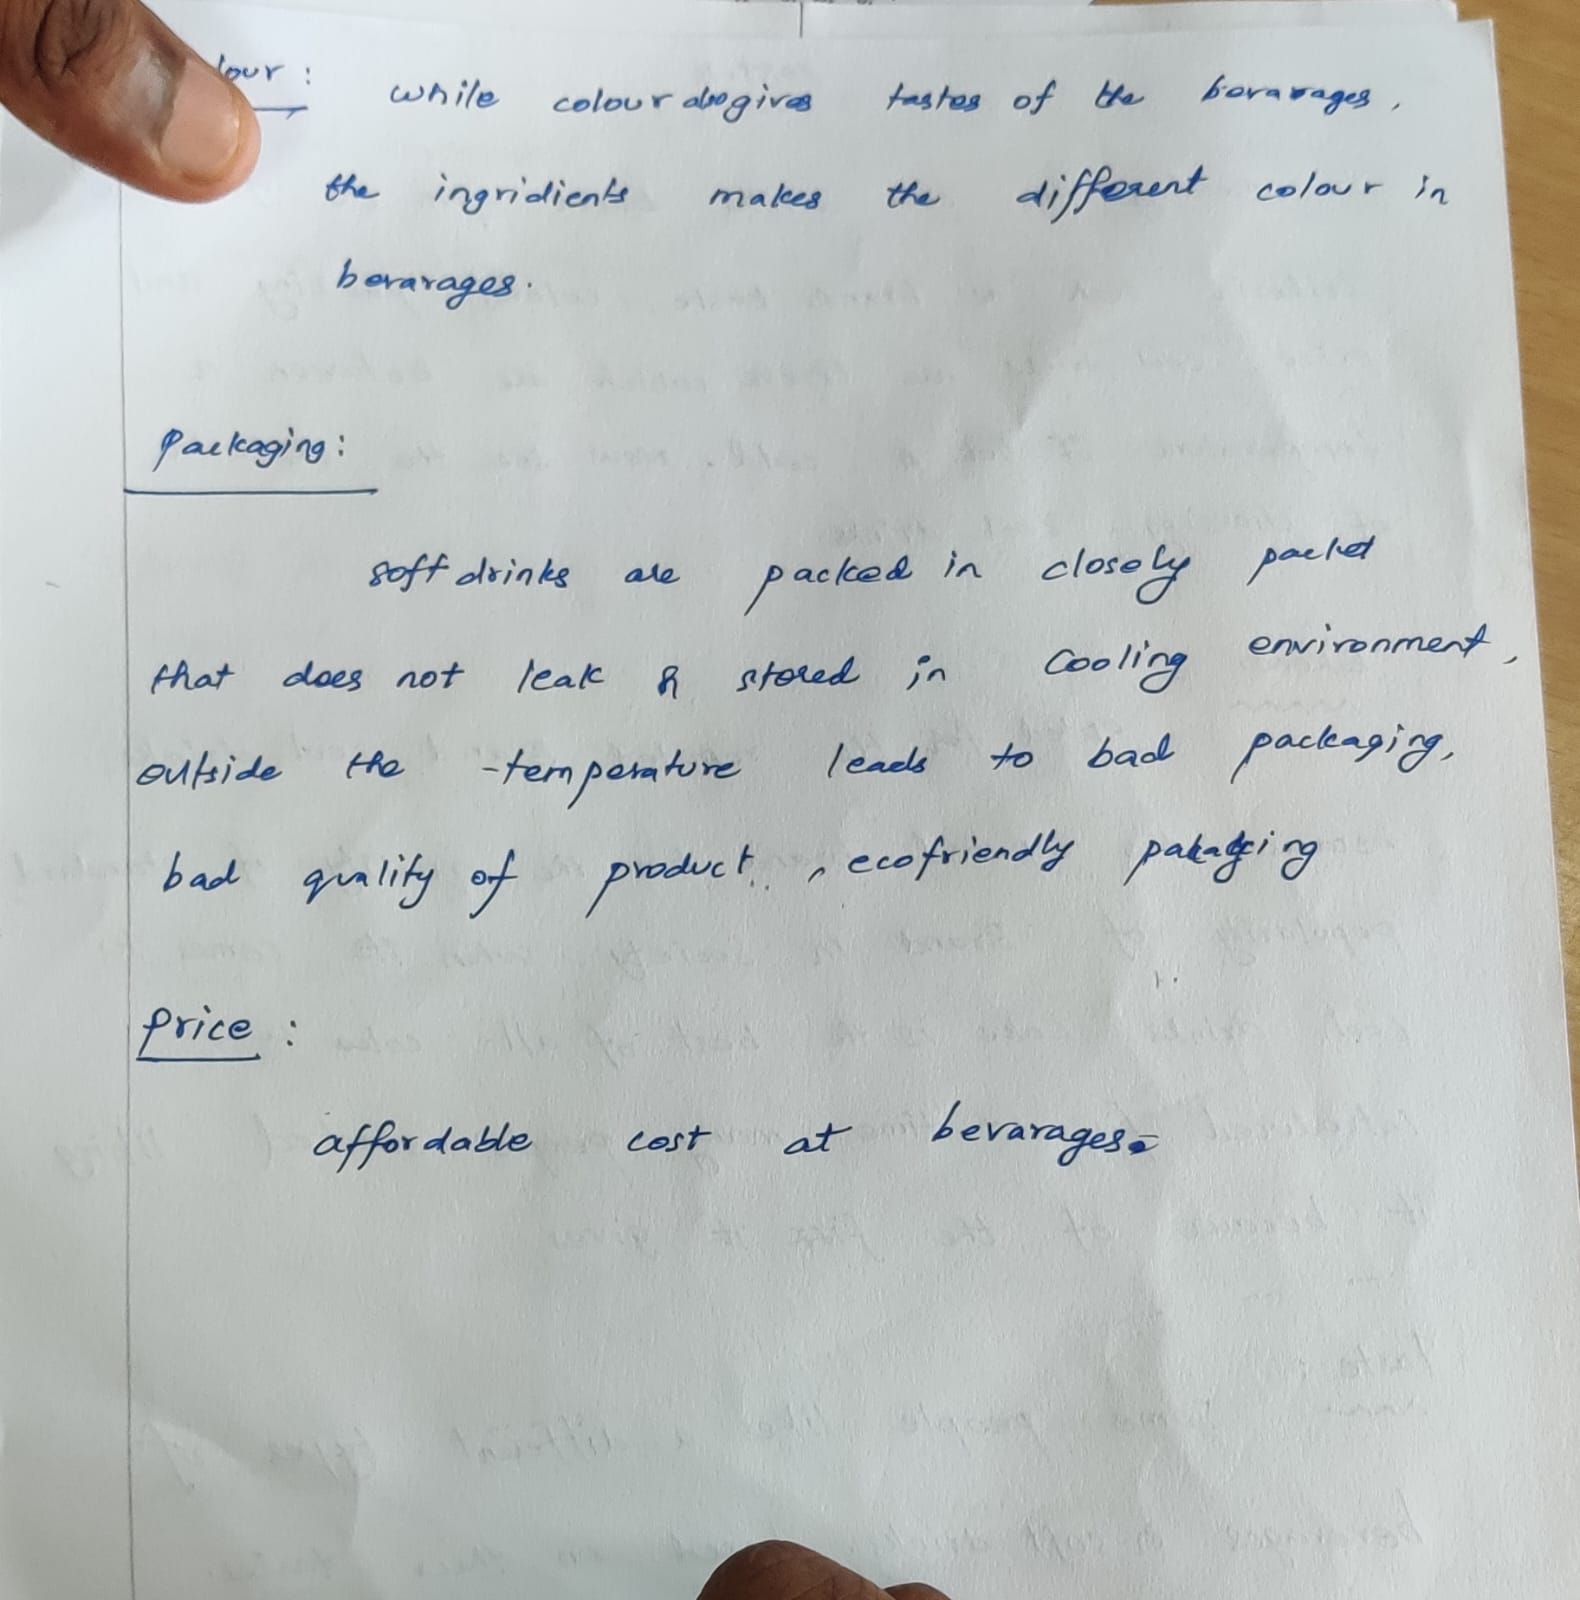 lour :
while colour also gives tastes of the bevarages,
the ingridients makes the different colour in
bevarages.
Packaging :
soft drinks are packed in closely packet
that does not leak & stored in cooling environment,
outside the temperature leads to bad packaging,
bad quality of product, ecofriendly pakaging
Price :
affordable cost at bevarages.